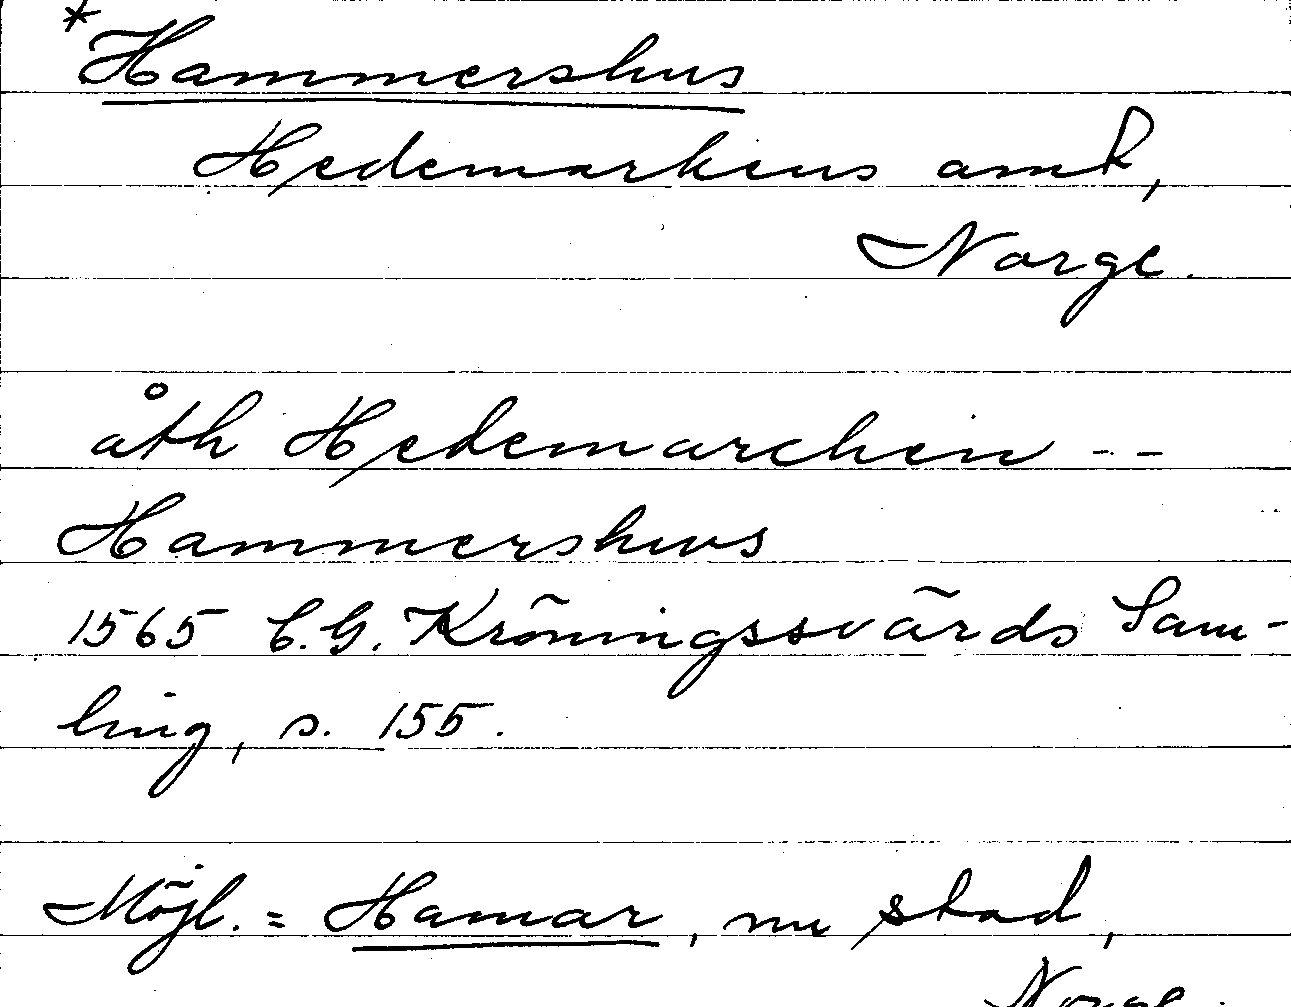 *Hammershus
Hedemarkens amt,
Norge.
åth Hedemarchen --
Hammershws
1565 C.G. Kröningssvärds Sam-
ling, s. 155.
Möjl. = Hamar, nu stad,
Norge.